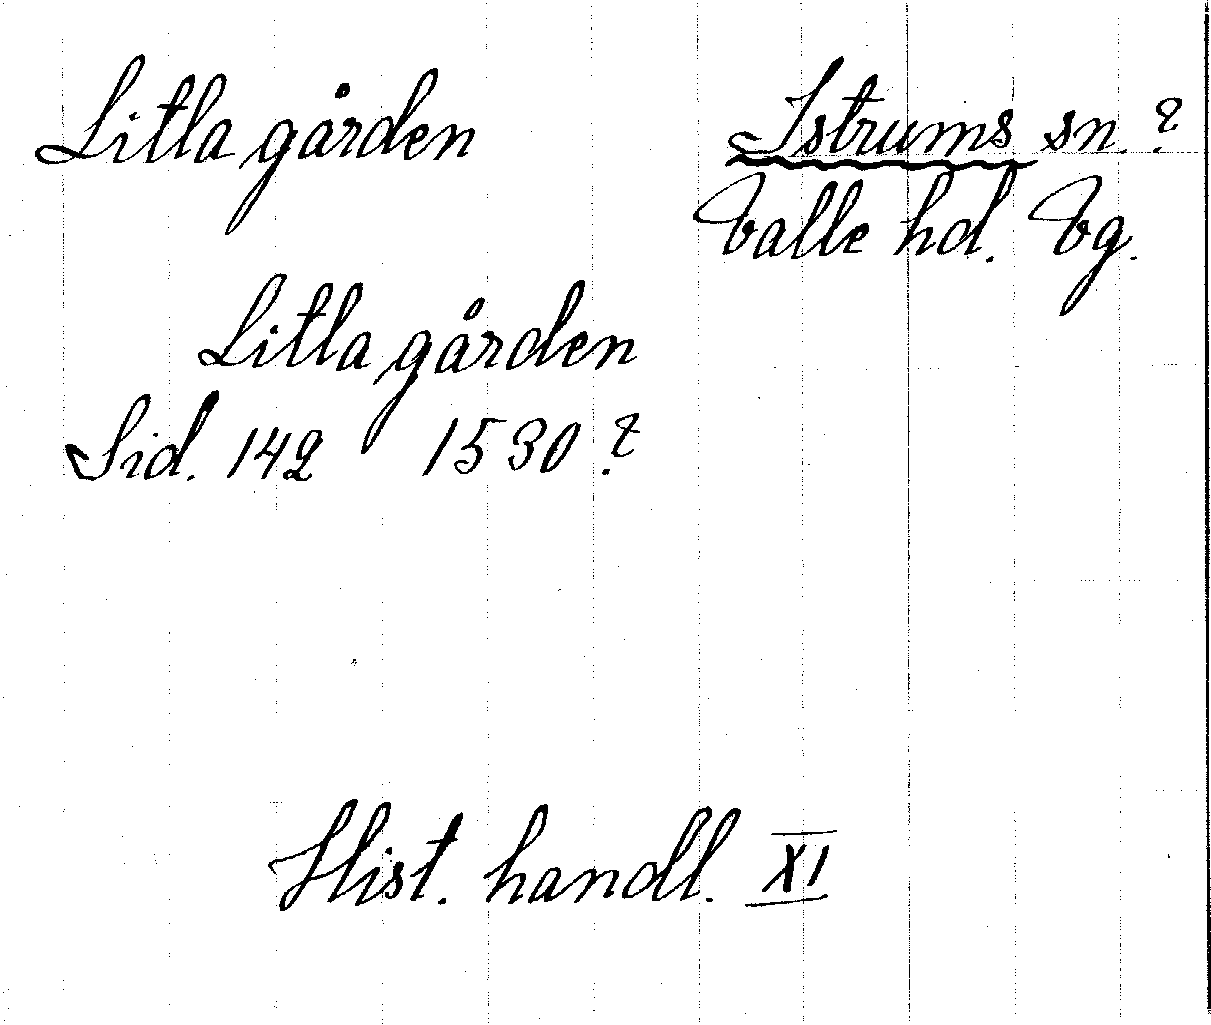 Litla gården
Istrums sn. ?
Valle hd. Vg.
Litla gården
Sid. 142 1530 ?
Hist. handl. XI